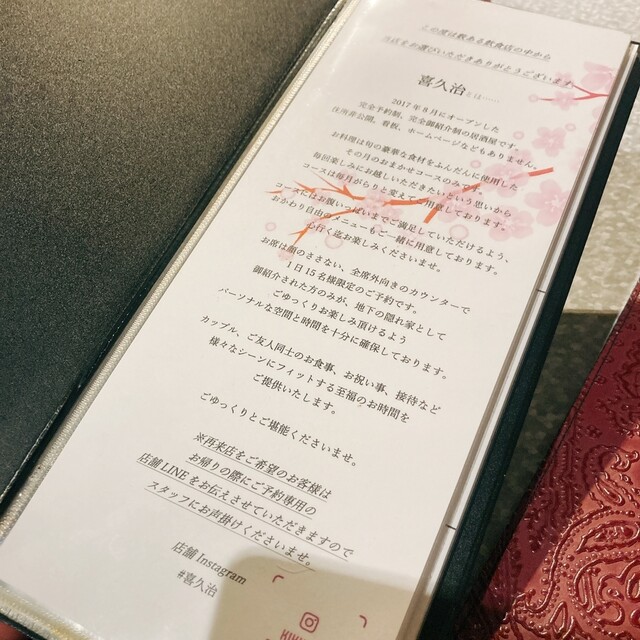 この度は数ある飲食店の中から
当店をお選びいただきありがとうございます。
喜久治とは……
2017年8月にオープンした
完全予約制、完全御紹介制の居酒屋です。
住所非公開、看板、ホームページなどもありません。
お料理は旬の豪華な食材をふんだんに使用した
その月のおまかせコースのみ。
毎回楽しみにお越しいただきたいという思いから
コースは毎月がらりと変えてご用意しております。
コースにはお腹いっぱいまでご満足していただけるよう、
おかわり自由のメニューもご一緒に用意しております。
心行く迄お楽しみくださいませ。
お席は顔のささない、全席外向きのカウンターで
1日15名様限定のご予約です。
御紹介された方のみが、地下の隠れ家として
ごゆっくりお楽しみ頂けるよう
パーソナルな空間と時間を十分に確保しております。
カップル、ご友人同士のお食事、お祝い事、接待など
様々なシーンにフィットする至福のお時間を
ご提供いたします。
ごゆっくりとご堪能くださいませ。
※再来店をご希望のお客様は
お帰りの際にご予約専用の
店舗LINEをお伝えさせていただきますので
スタッフにお声掛けくださいませ。
店舗Instagram
#喜久治